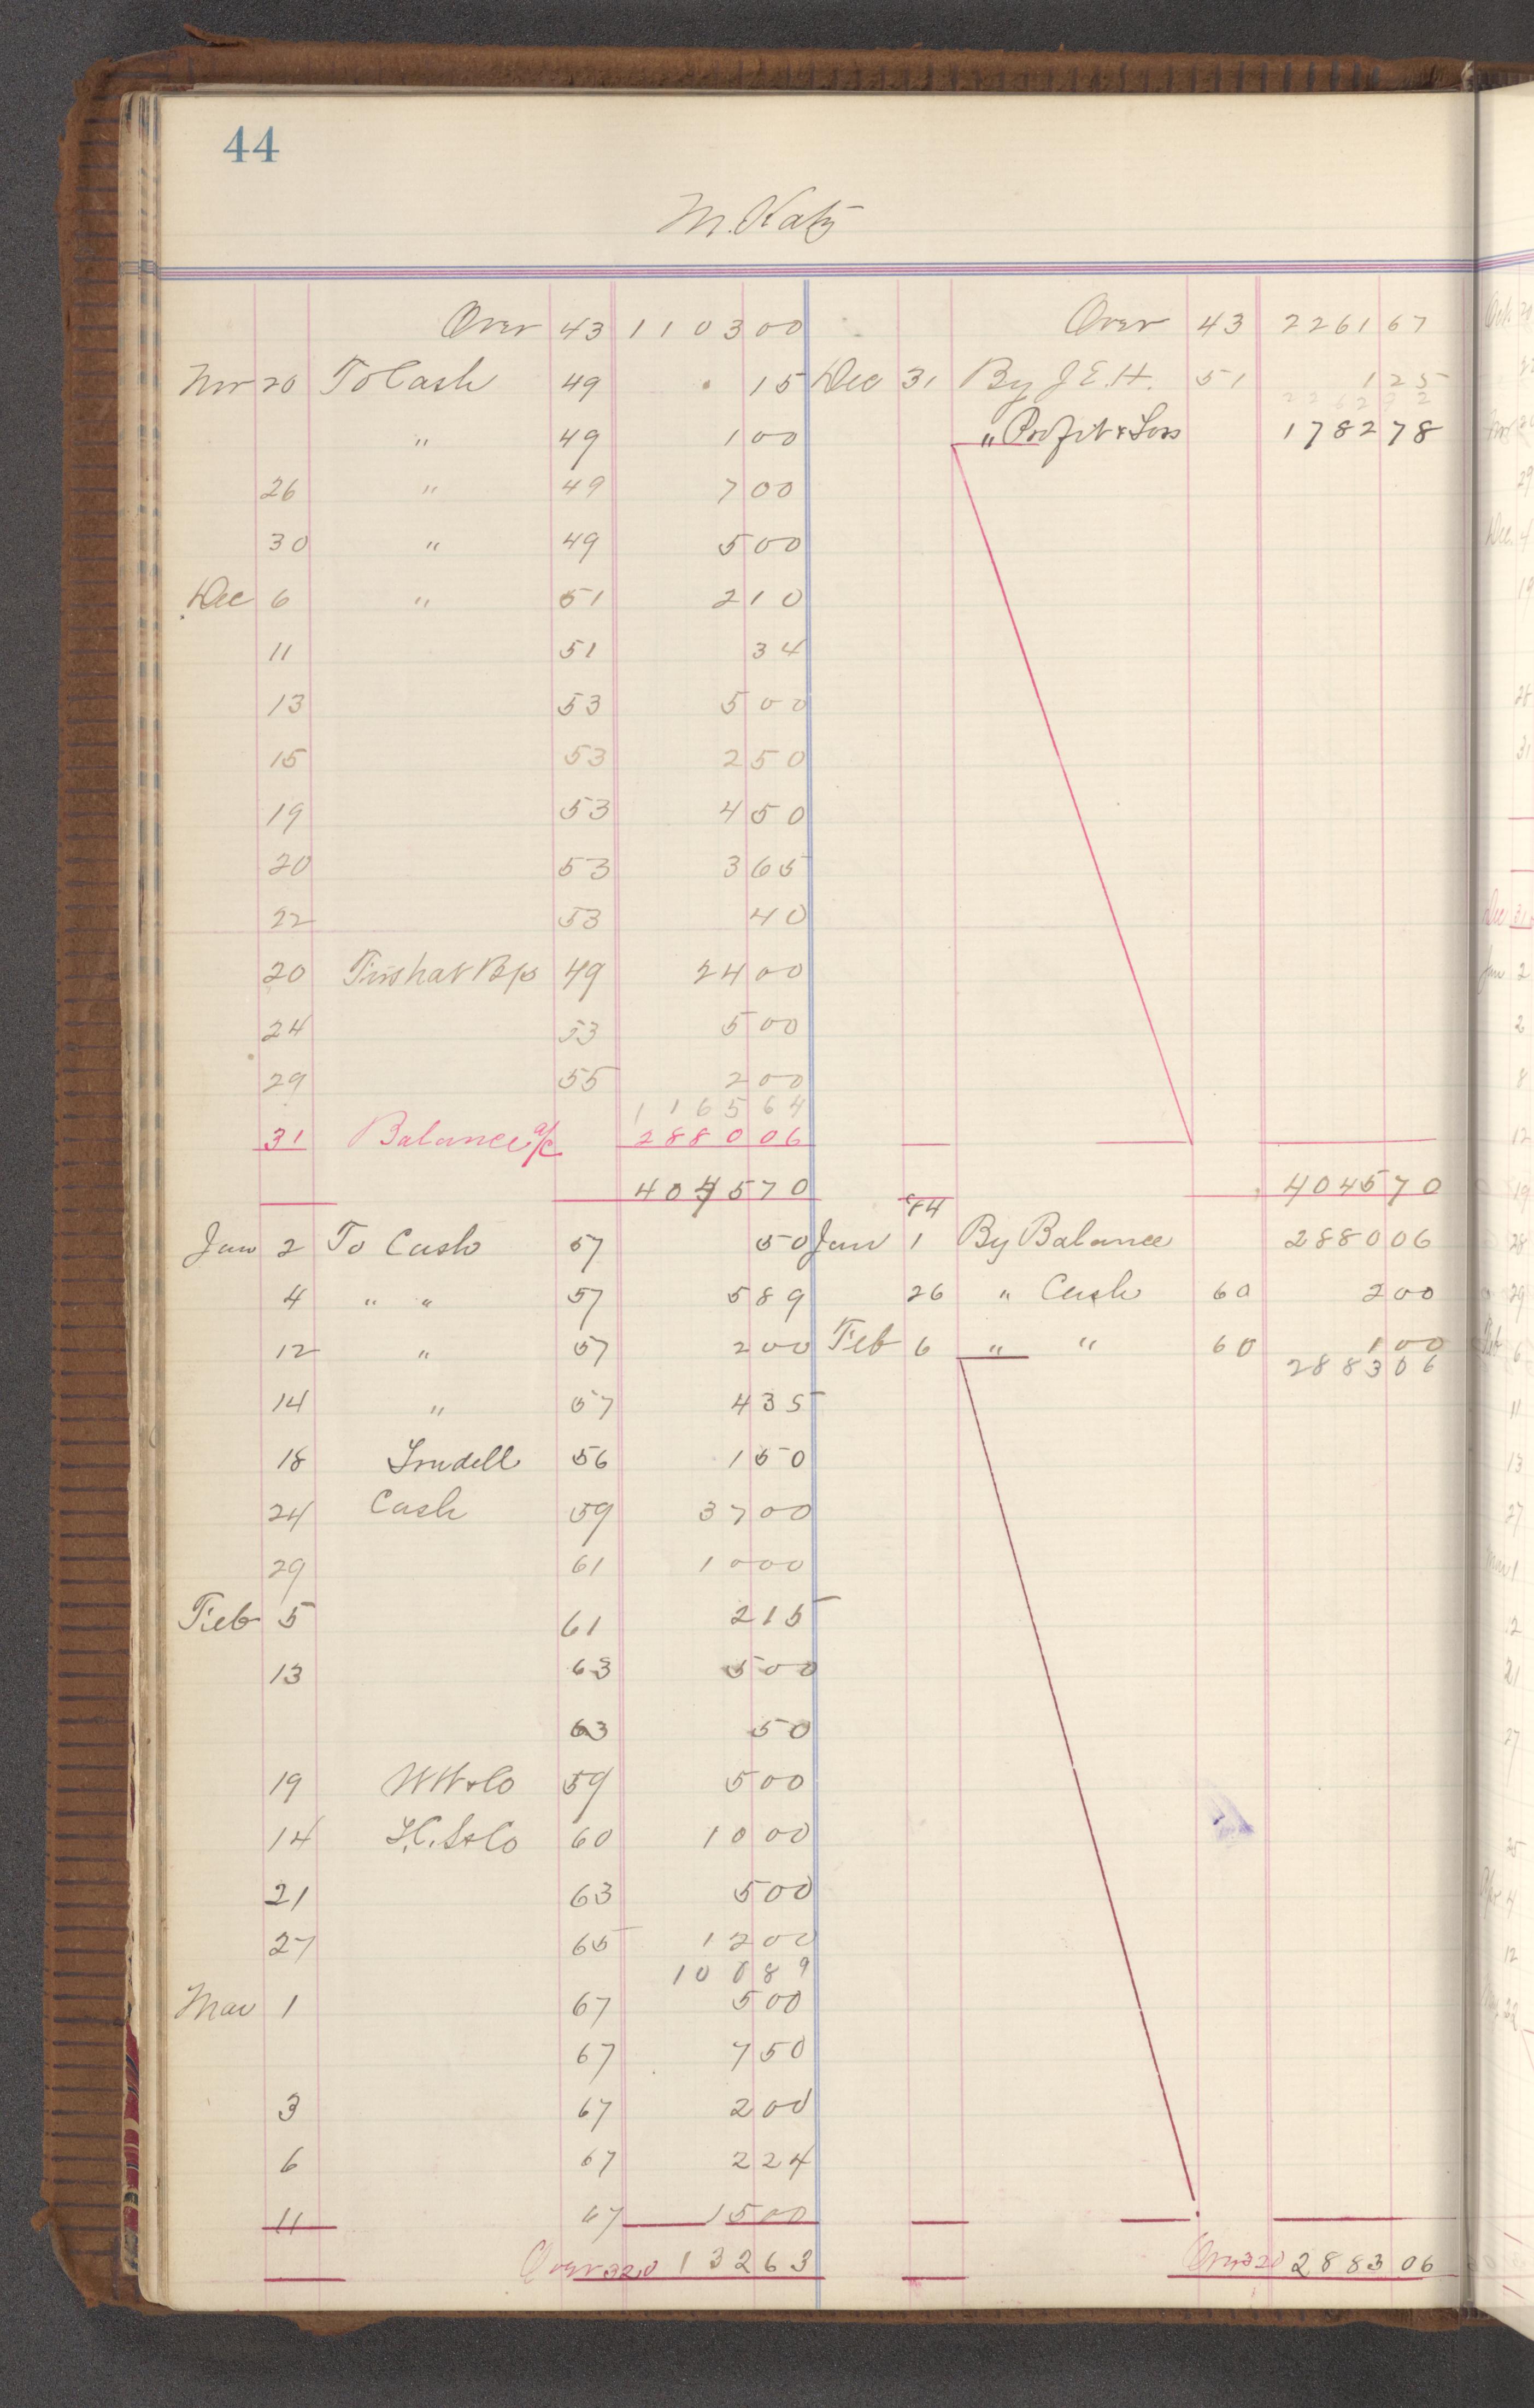 44
M. Katz
Over 43 1103 00 Over 43 2261 67
Nov 20 To Cash 49 15 Dec 31 By J E. H. 51 1 25
2262 92
" 49 1 00 " Profit & Loss 1782 78
26 " 49 7 00
30 " 49 5 00
Dec 6 " 51 2 10
11 51 34
13 53 5 00
15 53 2 50
19 53 4 50
20 53 3 65
22 53 40
20 49 24 00
24 53 5 00
29 55 2 00
1165 64
31 Balance a/c 2880 06
4045 70 4045 70
94
Jan 2 To Cash 57 50 Jan 1 By Balance 2880 06
4 " " 57 5 89 26 " Cash 60 2 00
12 " 57 2 00 Feb 6 " " 60 1 00
2883 06
14 " 57 4 35
18 56 1 50
24 Cash 59 37 00
29 61 10 00
Feb 5 61 2 15
13 63 5 00
63 50
19 W W & Co 59 5 00
14 60 10 00
21 63 5 00
27 65 12 00
100 89
Mar 1 67 5 00
67 7 50
3 67 2 00
6 67 2 24
11 67 15 00
Over 320 132 63 Over 320 2883 06